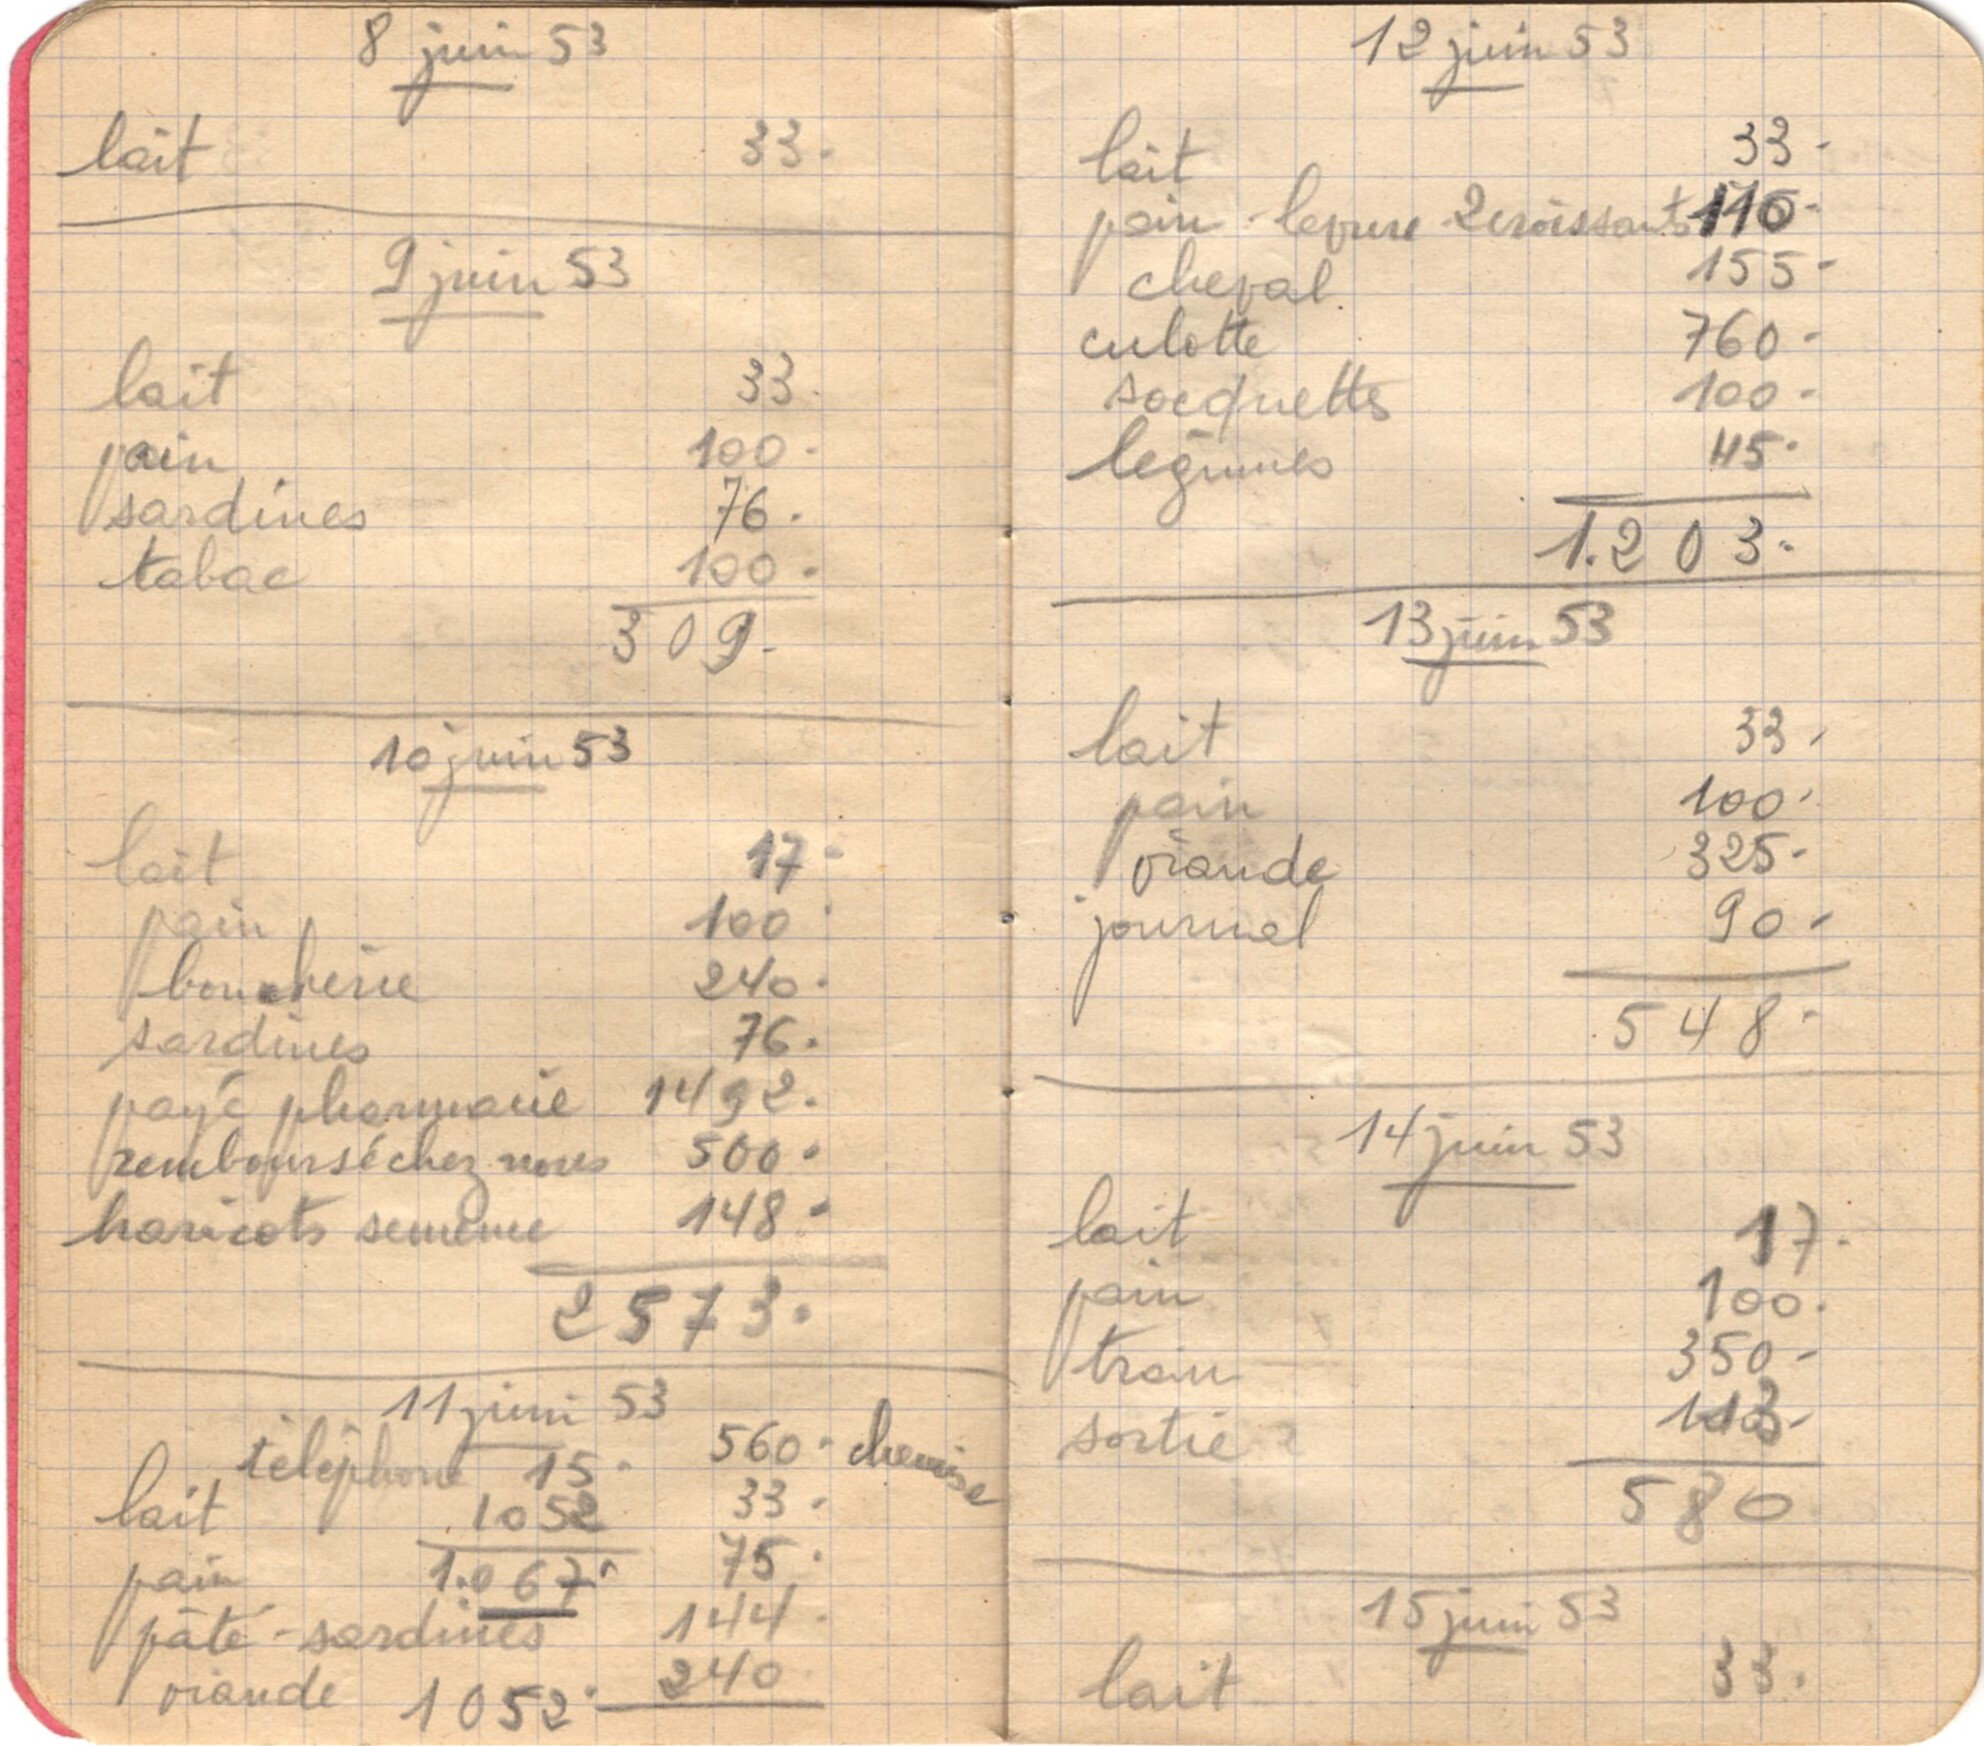 8 juin 53
lait 33.
9 juin 53
lait 33.
pain 100.
sardines 76.
tabac 100.
309.
10 juin 53
lait 17.
pain 100.
boucherie 240.
sardines 76.
payé pharmacie 1492.
remboursé chez nous 500.
haricots semence 148.
2573.
11 juin 53
téléphone 15. 560. chemise
lait 1052 33.
pain 1.067. 75.
pâté-sardines 144.
viande 1052. 240
12 juin 53
lait 33-
pain - levure - 2 croissants 110-
cheval 155-
culotte 760-
socquettes 100-
légumes 45.
1.203.
13 juin 53
lait 33.
pain 100.
viande 325-
journal 90-
548-
14 juin 53
lait 17.
pain 100.
train 350-
sortie 113-
580
15 juin 53
lait 33.